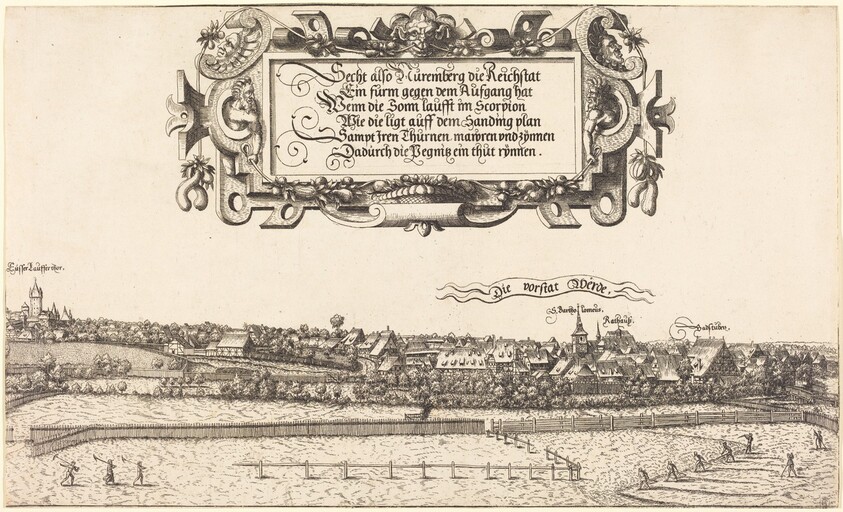 Secht also Nüremberg die Reichstat
Ein fürm gegen dem Aufgang hat
Wenn die Sonn laufft im Scorpion
Wie die ligt auff dem Sanding plan
Sampt Jren Thürnen mawren vnd zynnen
Dadürch die Pegnitz ein thut rynnen.
Eüsser Lauffer thor.
Die vorstat Wérde.
S. Bartholomeus.
Rathauß.
Badstuben.